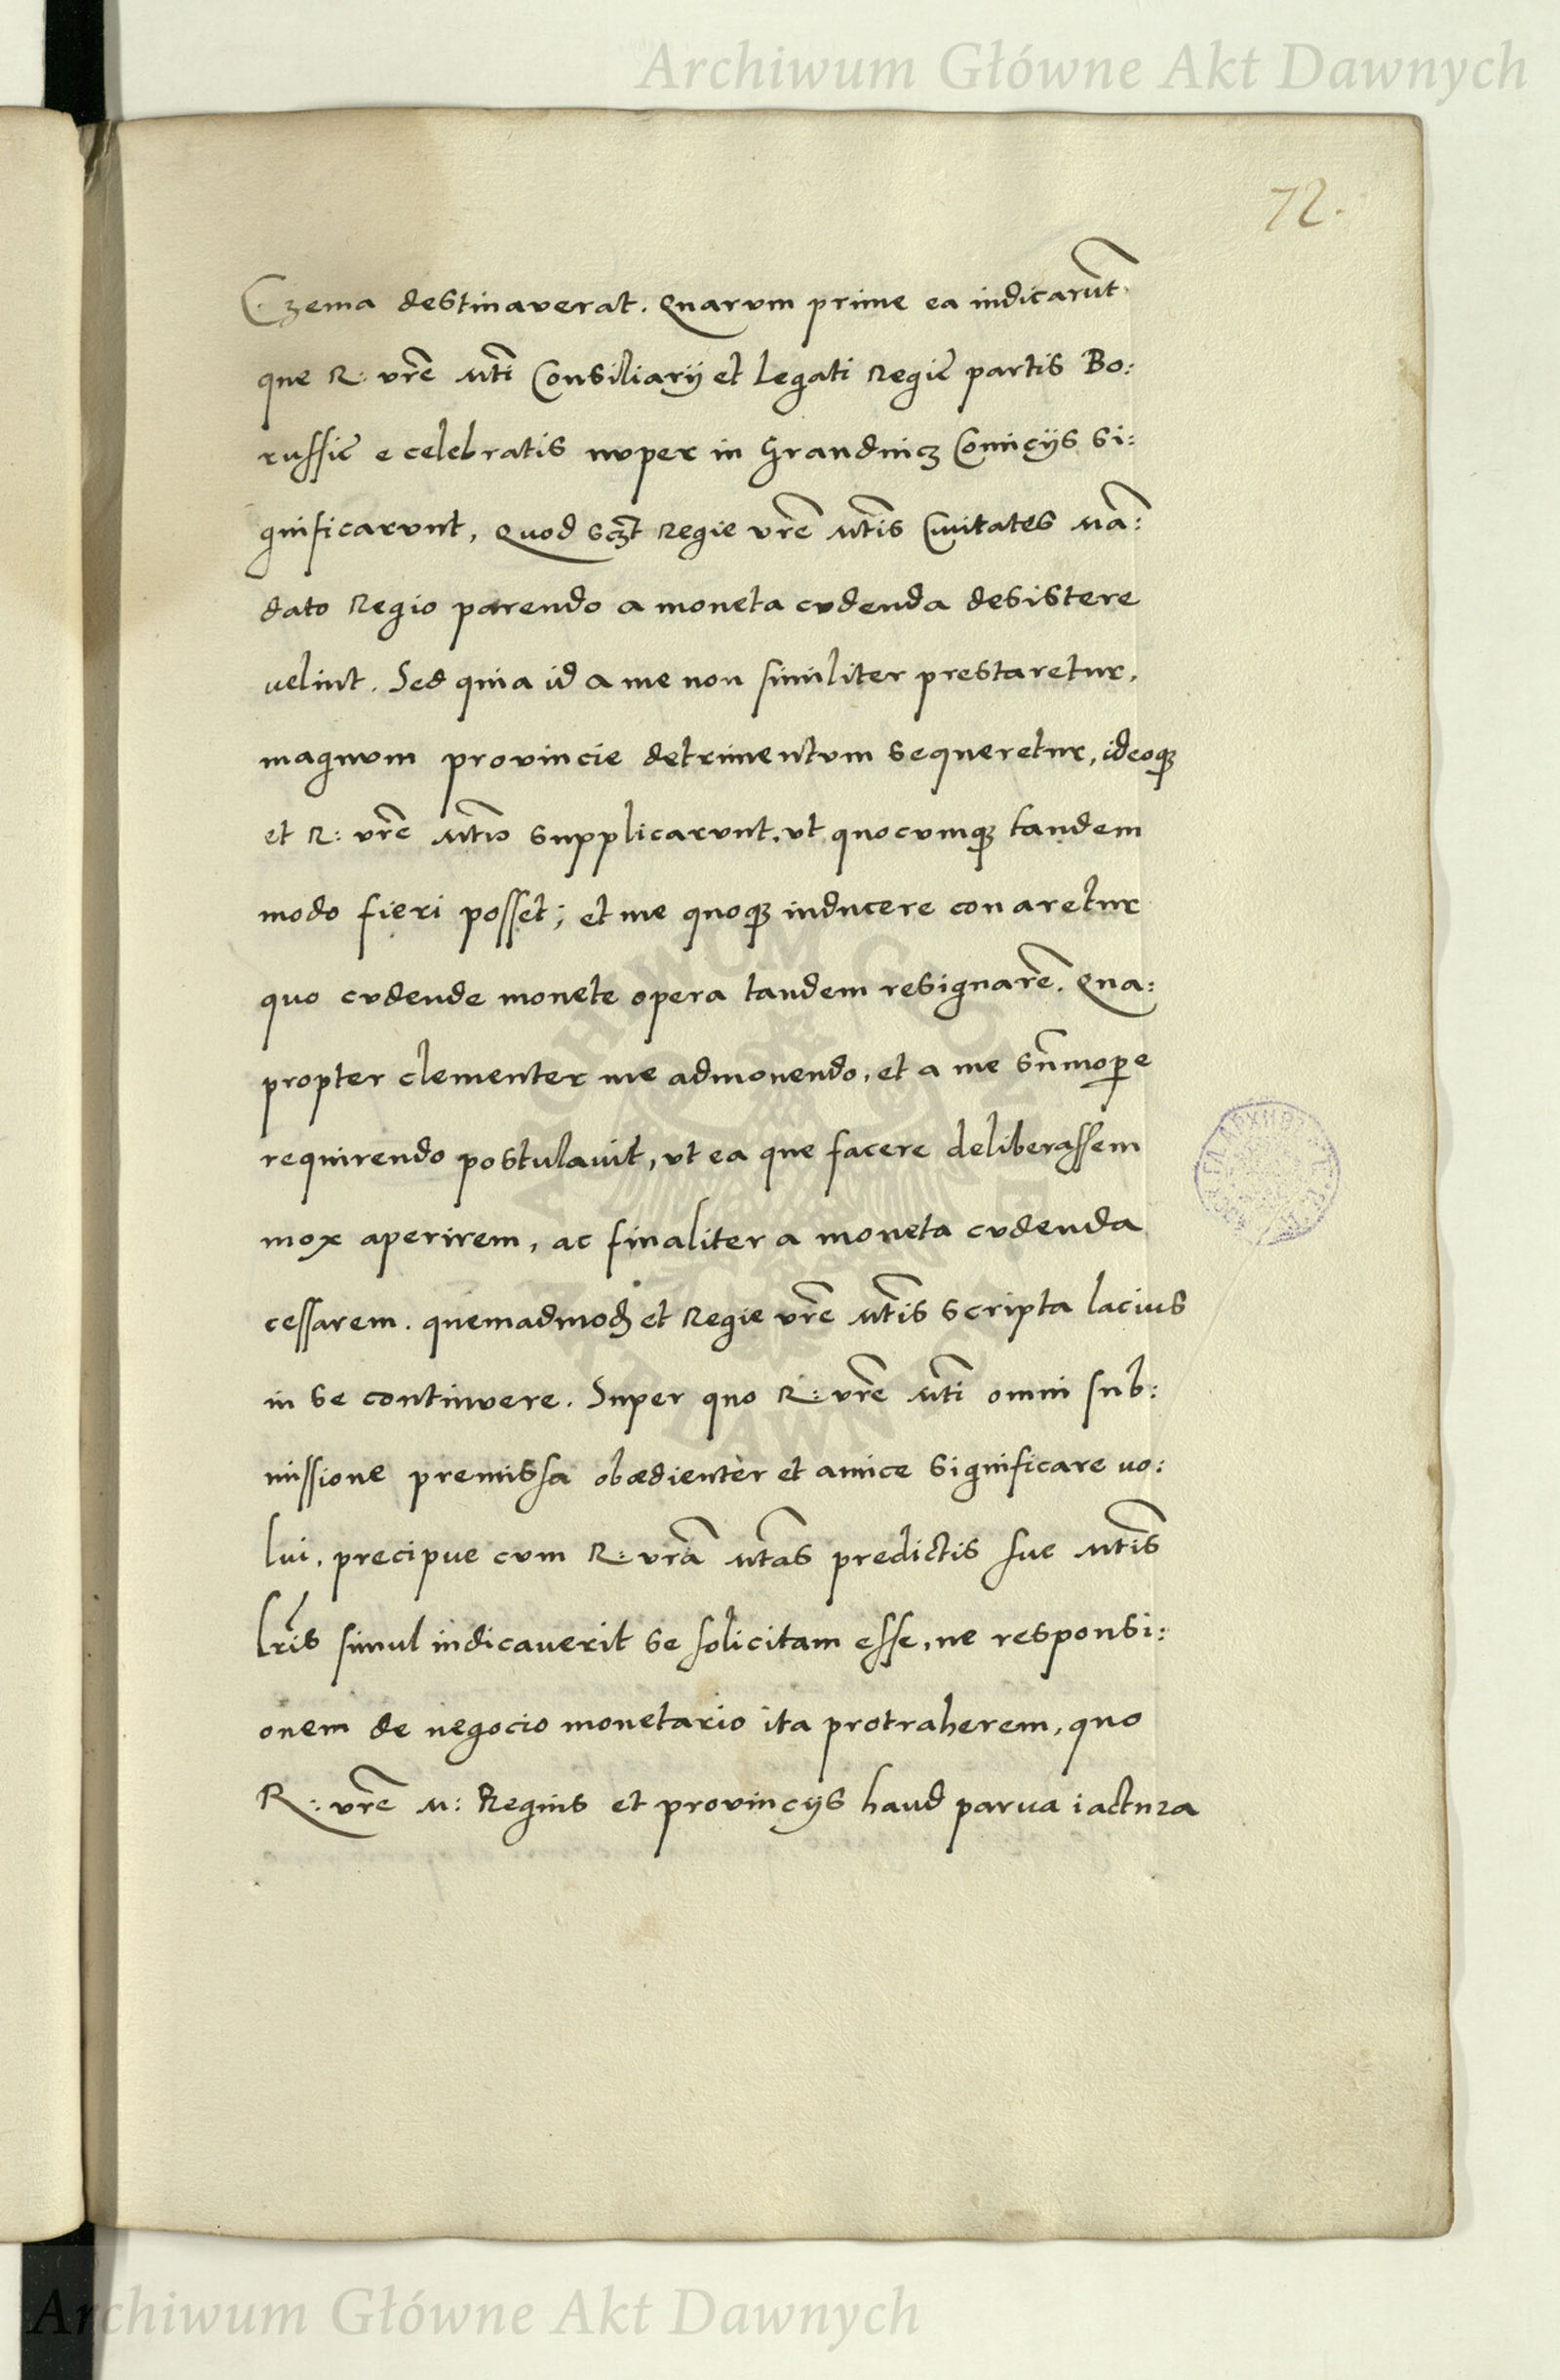 Archiwum Główne Akt Dawnych
72.
Czema destinaverat. Quarvm prime ea indicarūt
que R: vrē Mti Consiliarij et Legati Regiē partis Bo:
russiē e celebratis nvper in Graudnicz Comicijs si:
gnificarvnt, Quod sczt Regie vrē Mtis Civitates Mā:
dato Regio parendo a moneta cvdenda desistere
velint. Sed quia id a me non similiter prestaretur,
magnvm provincie detrimentvm sequeretur, ideoq3
et R: vrē Mtiō supplicarvnt, vt quocvmq3 tandem
modo fieri posset; et me quoq3 inducere conaretur
quo cvdende monete opera tandem resignarē. Qua:
propter clementer me admonendo, et a me sūmope
requirendo postulavit, vt ea que facere deliberassem
mox aperirem, ac finaliter a moneta cvdenda
cessarem. quemadmod et Regie vrē Mtis scripta lacius
in se continvere. Super quo R: vrē Mti omni sub:
missione premissa obædienter et amice significare vo:
lui, precipve cvm R: vrā Mtas predictis sue Mtis
Lris simul indicaverit se solicitam esse, ne responsi:
onem de negocio monetario ita protraherem, quo
R: vrē M: Regnis et provincijs haud parva iactura
ARCHIWUM GŁÓWNE
AKT DAWNYCH
Archiwum Główne Akt Dawnych